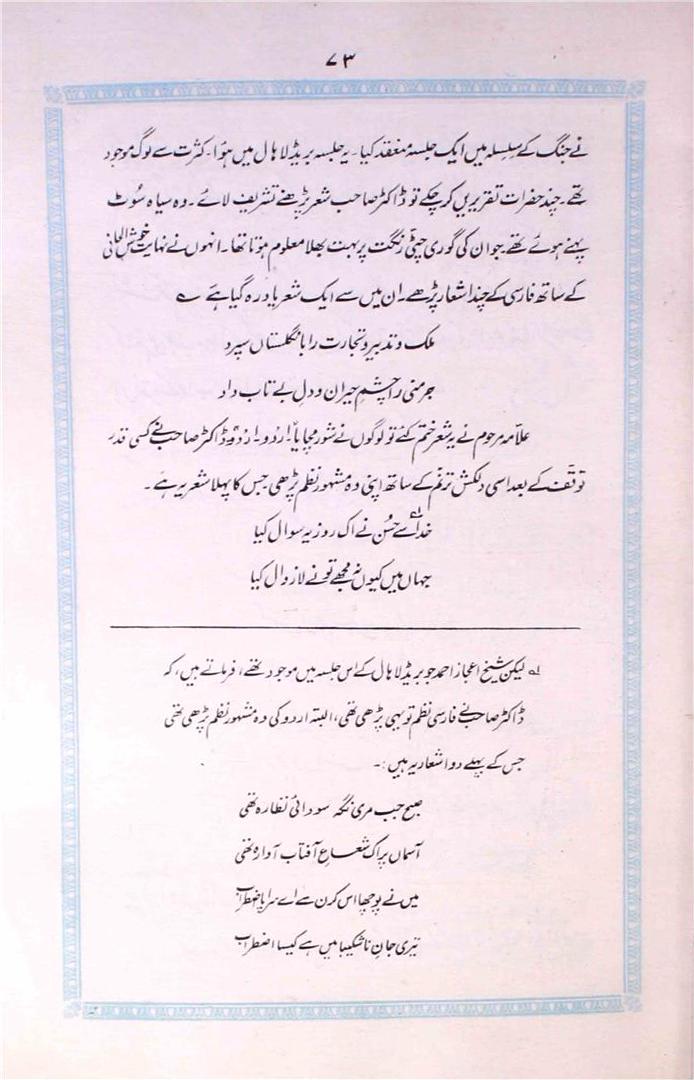 ۷۳
نے جنگ کے سلسلہ میں ایک جلسۂ منعقد کیا۔ یہ جلسہ بریڈلا ہال میں ہؤا۔ کثرت سے لوگ موجود
تھے۔ چند حضرات تقریریں کر چکے تو ڈاکٹر صاحب شعر پڑھنے تشریف لائے۔ وہ سیاہ سُوٹ
پہنے ہوئے تھے۔ جو ان کی گوری چٹی رنگت پر بہت بھلا معلوم ہوتا تھا۔ انہوں نے نہایت خوش الحانی
کے ساتھ فارسی کے چند اشعار پڑھے۔ ان میں سے ایک شعر یاد رہ گیا ہے ؎
ملک و تدبیر و تجارت را بانگلستاں سپرد
جرمنی را چشمِ حیران و دلِ بے تاب داد
علامہ مرحوم نے یہ شعر ختم کئے تو لوگوں نے شور مچایا۔ اردو۔ اردو۔ ڈاکٹر صاحب نے کسی قدر
توقف کے بعد اسی دلکش ترنم کے ساتھ اپنی وہ مشہور نظم پڑھی جس کا پہلا شعر یہ ہے۔
خدا سے حُسن نے اک روز یہ سوال کیا
جہاں میں کیوں نہ مجھے تو نے لازوال کیا
لہ لیکن شیخ اعجاز احمد جو بریڈلا ہال کے اس جلسہ میں موجود تھے، فرماتے ہیں، کہ
ڈاکٹر صاحب نے فارسی نظم تو یہی پڑھی تھی، البتہ اردو کی وہ مشہور نظم پڑھی تھی
جس کے پہلے دو اشعار یہ ہیں:۔
صبح جب مری نگہ سودائیٔ نظارہ تھی
آسماں پر اک شعاعِ آفتاب آوارہ تھی
میں نے پوچھا اس کرن سے اے سراپا اضطراب
تیری جانِ ناشکیبا میں ہے کیسا اضطراب